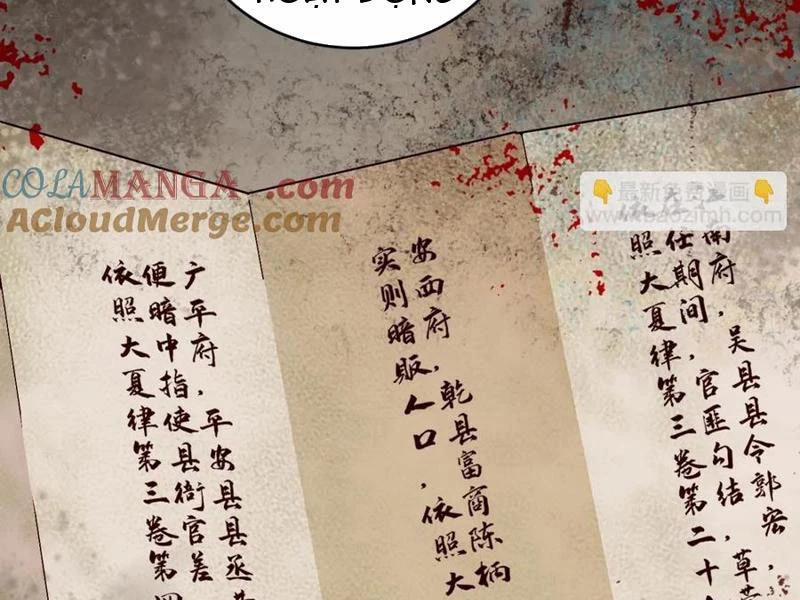 COLAMANGA.com
ACloudMerge.com
👇最新免费漫画👇
www.baozimh.com
南府,吴县县令郭宏,
任期间,官匪勾结,草
依照大夏律第三卷第二十
安西府,乾县富商陈柄
实则暗贩人口,依照大
广平府,平安县县丞
便暗中指使县衙官差
依照大夏律第三卷第四